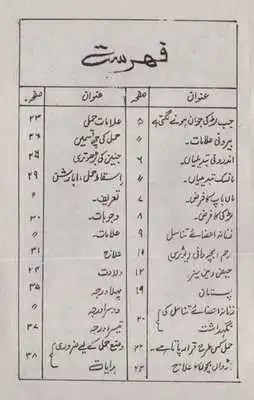 فہرست
عنوان صفحہ عنوان صفحہ
جب لڑکی جوان ہونے لگتی ہے ۵
بیرونی علامات۔ ״
اندرونی تبدیلیاں۔ ۶
ماہانہ تبدیلیاں۔ ״
ماں باپ کا فرض۔ ۷
لڑکی کا فرض۔ ۸
زنانہ اعضائے تناسل ۹
رحم (بچہ دانی) (یوٹرس) ۱۱
حیض (مینسز) ۱۲
پستان ۱۹
زنانہ اعضائے تناسل کی نگہداشت ۲۰
حمل کس طرح قرار پاتا ہے۔ ۲۲
جڑواں بچوں کا علاج ۲۳
علامات حمل ۲۳
حمل کی قسمیں ۲۶
جنین کی بڑھوتری ۲۶
اسقاط حمل، ابارشن ۲۹
تعریف۔ ״
وجوہات۔ ۳۰
علامات۔ ״
علاج ۳۱
ولادت ۳۴
پہلا درجہ ۳۵
دوسرا درجہ ״
تیسرا درجہ ۳۷
وضع حمل کے لیے ضروری ہدایات ۳۸